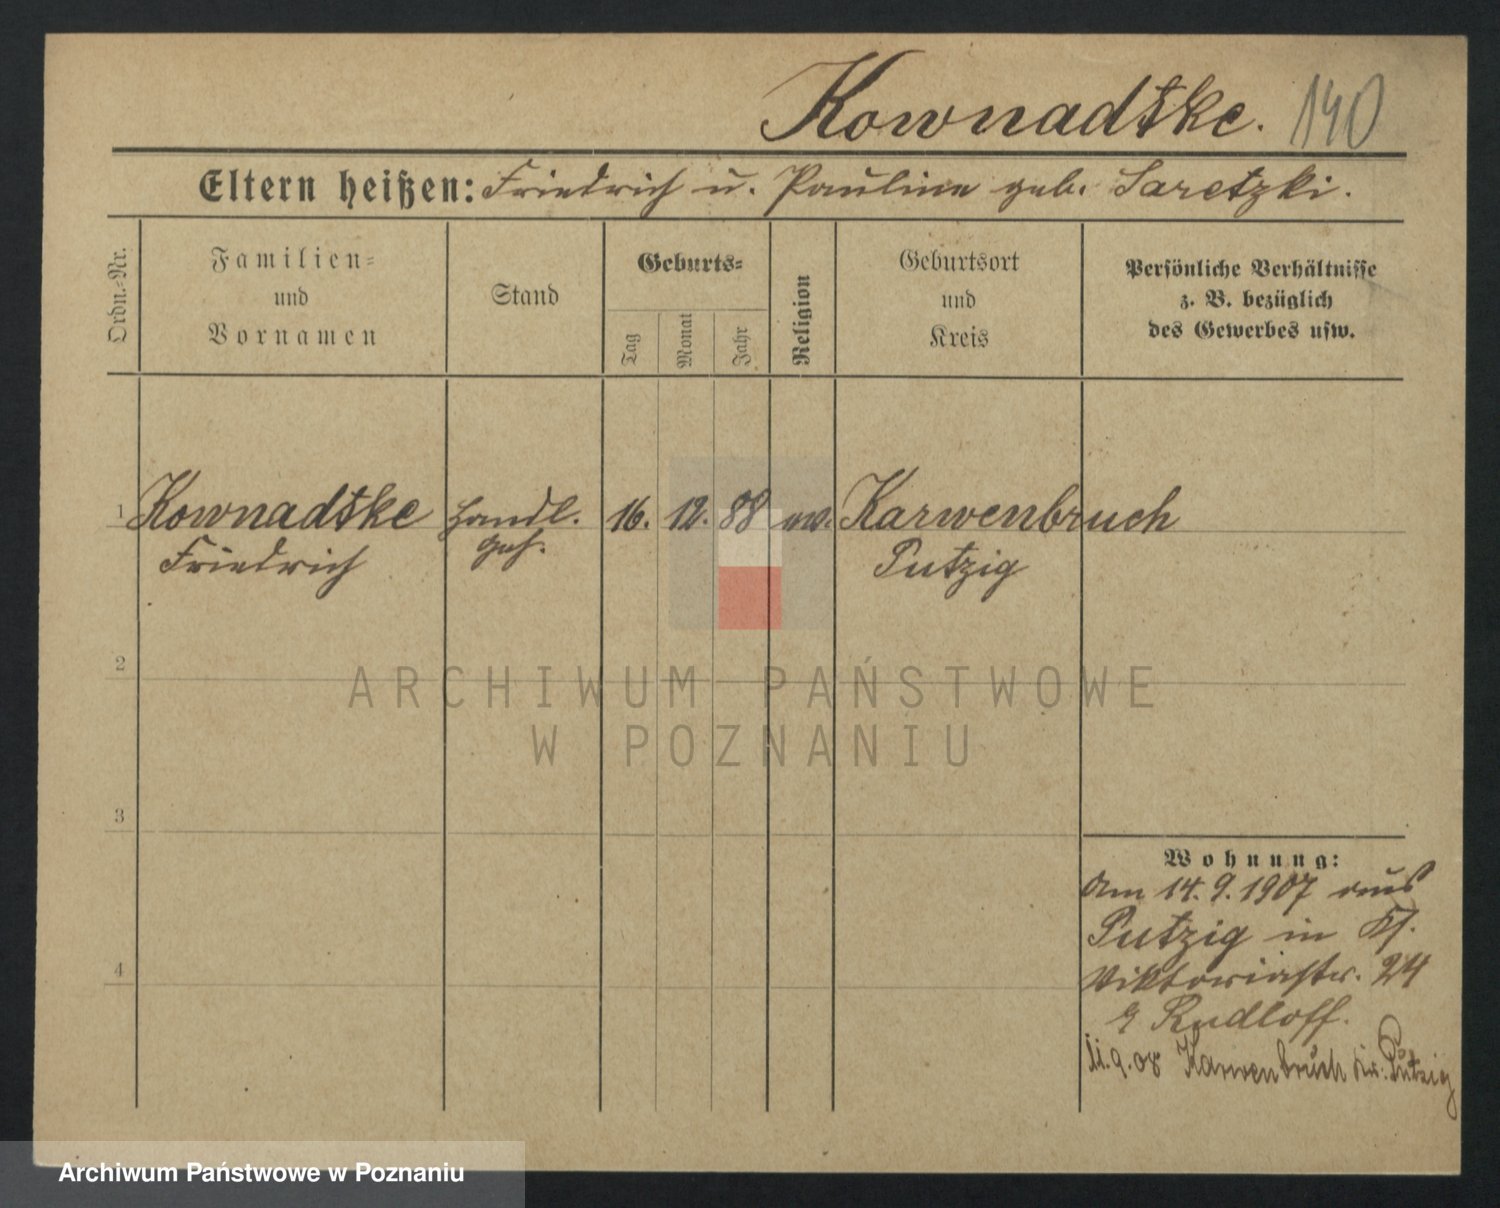 Kownadtke. 140
Eltern heißen: Friedrich u. Pauline geb. Saretzki.
Ordn.-Nr.
Familien-
und
Vornamen
Stand
Geburts-
Tag
Monat
Jahr
Religion
Geburtsort
und
Kreis
Persönliche Verhältnisse
z. B. bezüglich
des Gewerbes usw.
1 Kownadtke Handl. 16. 12. 88 ev. Karwenbruch
Friedrich geh. Putzig
2
3
4
Wohnung:
Am 14.9.1907 aus
Putzig in
Viktoriastr. 24
Rudloff.
11.9.08 Karwenbruch Kr. Putzig
ARCHIWUM PAŃSTWOWE
W POZNANIU
Archiwum Państwowe w Poznaniu